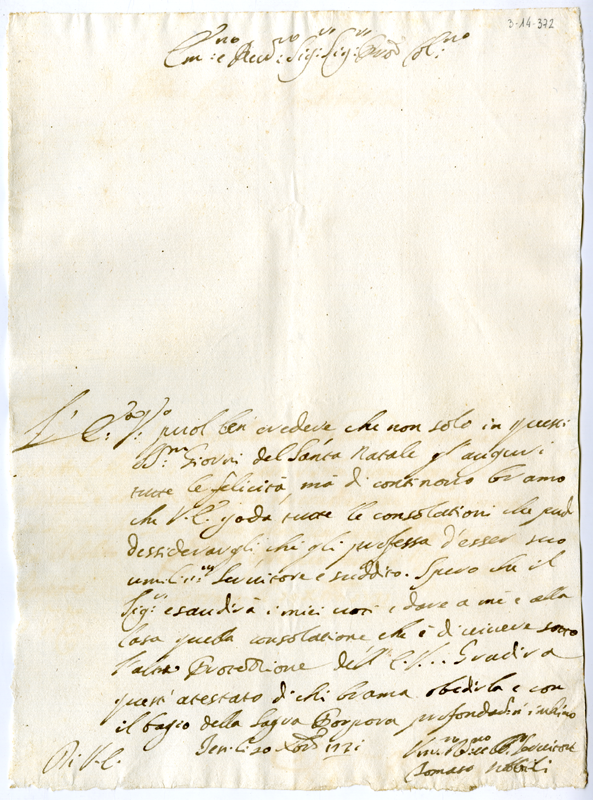 3-14-372
Em:mo e Reud:mo Sig:r Sig:r Prōn Col:mo
L' E:a V:a puol ben credere che non solo in questi
SS:mi Giorni del Santa Natale gl'auguri
tutte le felicità, mà di continovo bramo
che V.E. goda tutte le consolationi che può
dessiderargli chi gli professa d'esser suo
umiliss:mo Servitore e suddito. Spero che il
Sig:re esaudirà i miei voti e dare a me e alla
Casa quella consolatione che è di vivere sotto
l'alta Protettione dell'E.V. Gradirà
quest'atestato di chi brama obedirla e con
il bagio della Sagra Porpora profondam:
Di V.E. 1721
Tomaso Nobili